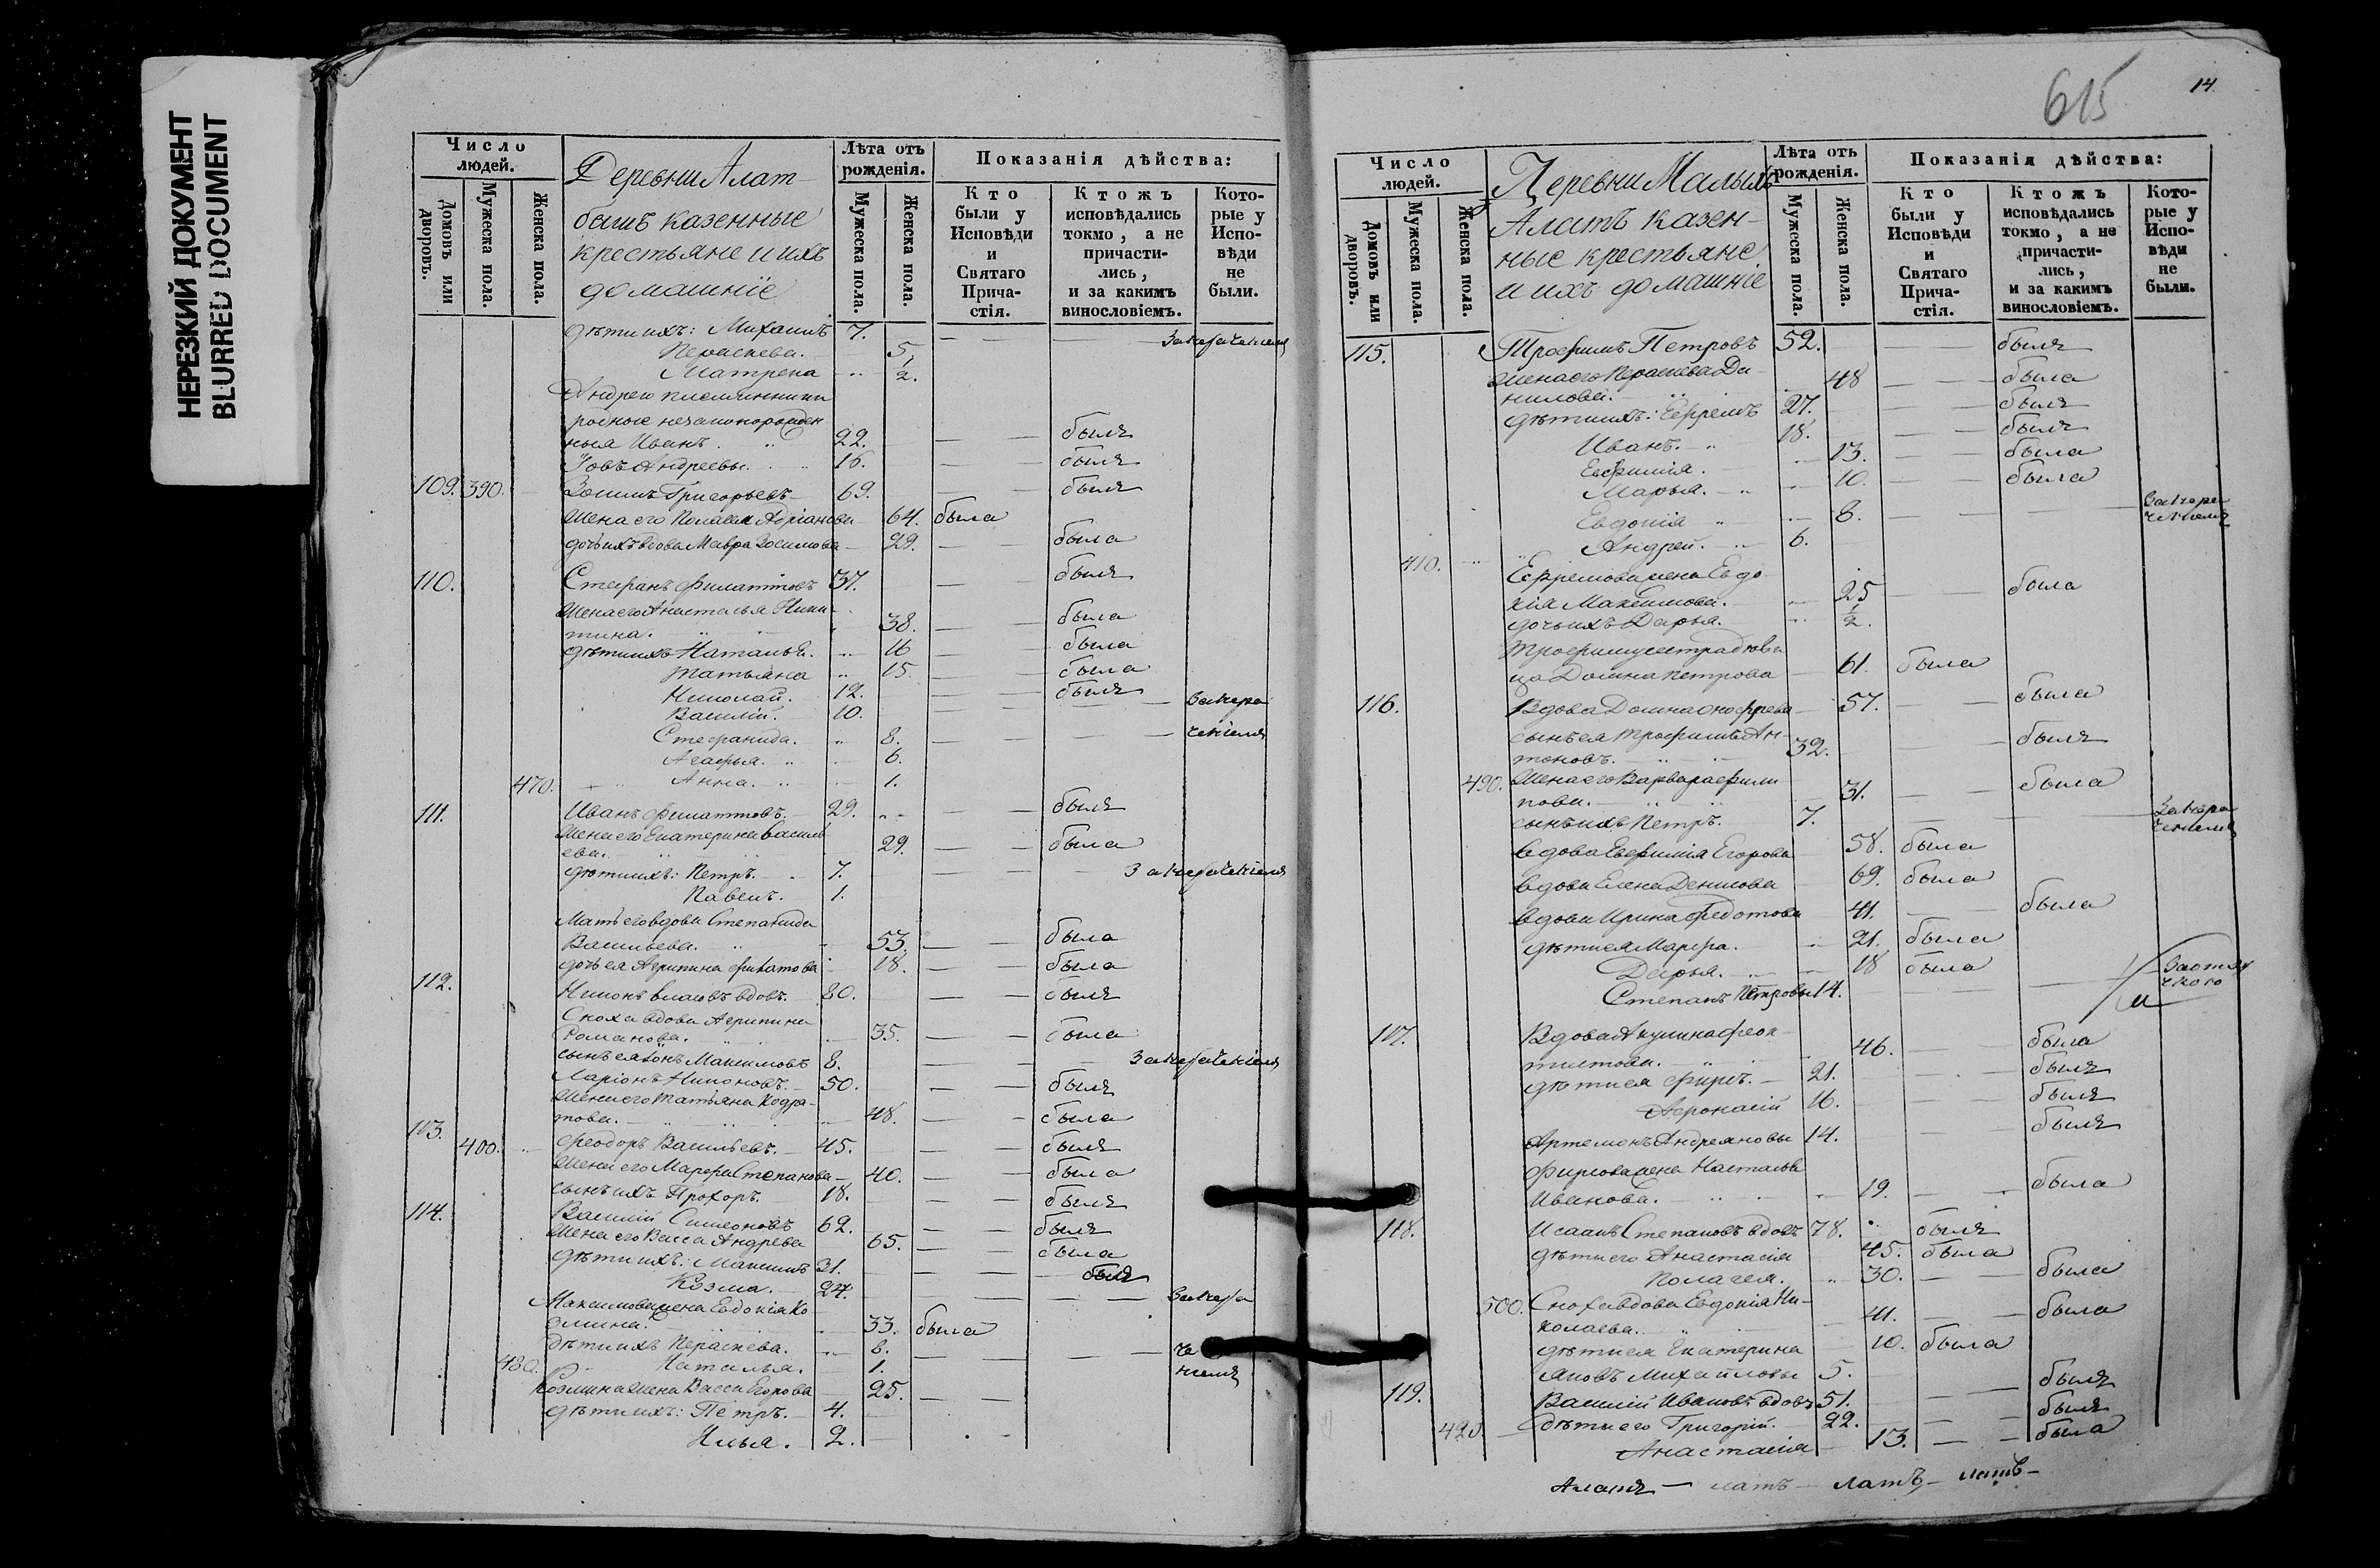 НЕРЕЗКИЙ ДОКУМЕНТ
BLURRED DOCUMENT
Число людей.
Домовъ или дворовъ.
Мужеска пола.
Женска пола.
Деревни Алат-
бышъ казенные
крестьяне и ихъ
домашніе
Лѣта отъ рожденія.
Мужеска пола.
Женска пола.
Показанія дѣйства:
Кто были у Исповѣди и Святаго Причастія.
Ктожъ исповѣдались токмо, а не причастились, и за какимъ винословіемъ.
Которые у Исповѣди не были.
дѣти ихъ: Михаилъ 7.
Пераскева. 5
Матрена 1/2.
Андрею племянники
родные незаконорожден
ныя Иванъ. 22. былъ
Іовъ Андреевы. 16. былъ
109. 390. Зосимъ Григорьевъ 69. былъ
Жена его Пелагея Адріанова 64. была
дочь ихъ вдова Мавра Зосимова 29. была
110. Стефанъ Филаттовъ 37. былъ
Жена его Анастасья Ники-
тина. 38. была
дѣти ихъ Наталья. 16 была
Татьяна 15. была
Николай. 12. былъ
Василій. 10.
Стефанида. 8.
Агафья. 6.
470. Анна. 1.
111. Иванъ Филаттовъ. 29. былъ
Жена его Екатерина Василь
ева. 29. была
дѣти ихъ: Петръ. 7.
Павелъ. 1.
Мать его вдова Степанида
Васильева. 53. была
дочь ея Агрипина Филатова 18. была
112. Никонъ Власовъ вдовъ. 80. былъ
Сноха вдова Агрипина
Романова. 35. была
сынъ ея Іонъ Максимовъ 8.
Ларіонъ Никоновъ. 50. былъ
Жена его Татьяна Кодра-
това. 48. была
113. 400. Феодоръ Васильевъ. 45. былъ
Жена его Марфа Степанова 40. была
сынъ ихъ Прохоръ. 18. былъ
114. Василій Симеоновъ 62. былъ
Жена его Васса Андрева 65. была
дѣти ихъ: Максимъ 31. былъ
Козма. 24.
Максимова жена Евдокія Ко
смина. 33. была
дѣти ихъ Пераскева. 8.
480. Наталья. 1.
Козмина жена Васса Егорова 25.
дѣти ихъ: Петръ. 4.
Илья. 2.
615
14.
Число людей.
Домовъ или дворовъ.
Мужеска пола.
Женска пола.
Деревни Малыхъ
Алатъ казен-
ные крестьяне
и ихъ домашніе
Лѣта отъ рожденія.
Мужеска пола.
Женска пола.
Показанія дѣйства:
Кто были у Исповѣди и Святаго Причастія.
Ктожъ исповѣдались токмо, а не причастились, и за какимъ винословіемъ.
Которые у Исповѣди не были.
115. Трофимъ Петровъ 52. былъ
Жена его Пераскева Да-
нилова. 48 была
дѣти ихъ: Ефремъ 27. былъ
Иванъ. 18. былъ
Евфимія. 13. была
Марья. 10. была
Евдокія 8.
Андрей. 6.
410. Ефремова жена Евдо
кія Максимова. 25 была
дочь ихъ Дарья. 1/2.
Трофиму сестра дѣви
ца Домна Петрова 61. была
116. Вдова Домна Онофрева 57. была
сынъ ея Трофимъ Ан-
тоновъ. 32. былъ
490. Жена его Варвара Фили
пова. 31. была
сынъ ихъ Петръ. 7.
вдова Евфимія Егорова 58. была
вдова Елена Денисова 69. была
вдова Ирина Федотова 41. была
дѣти ея Марфа. 21. была
Дарья. 18 была
Степанъ Петровы 14.
117. Вдова Акулина Феок-
тистова. 46. была
дѣти ея Фирсъ. 21. былъ
Афонасій 16. былъ
Артемонъ Андреяновы 14. былъ
Фирсова жена Наталья
Иванова. 19. была
118. Исаакъ Степановъ вдовъ 78. былъ
дѣти его Анастасія 45. была
Полагея. 30. была
500. Сноха вдова Евдокія Ни-
колаева. 41. была
дѣти ея Екатерина 10. была
Яковъ Михайловы 5.
119. Василій Ивановъ вдовъ 51. былъ
420. дѣти его Григорій. 22. былъ
Анастасія 13. была
латъ — латъ — латъ —